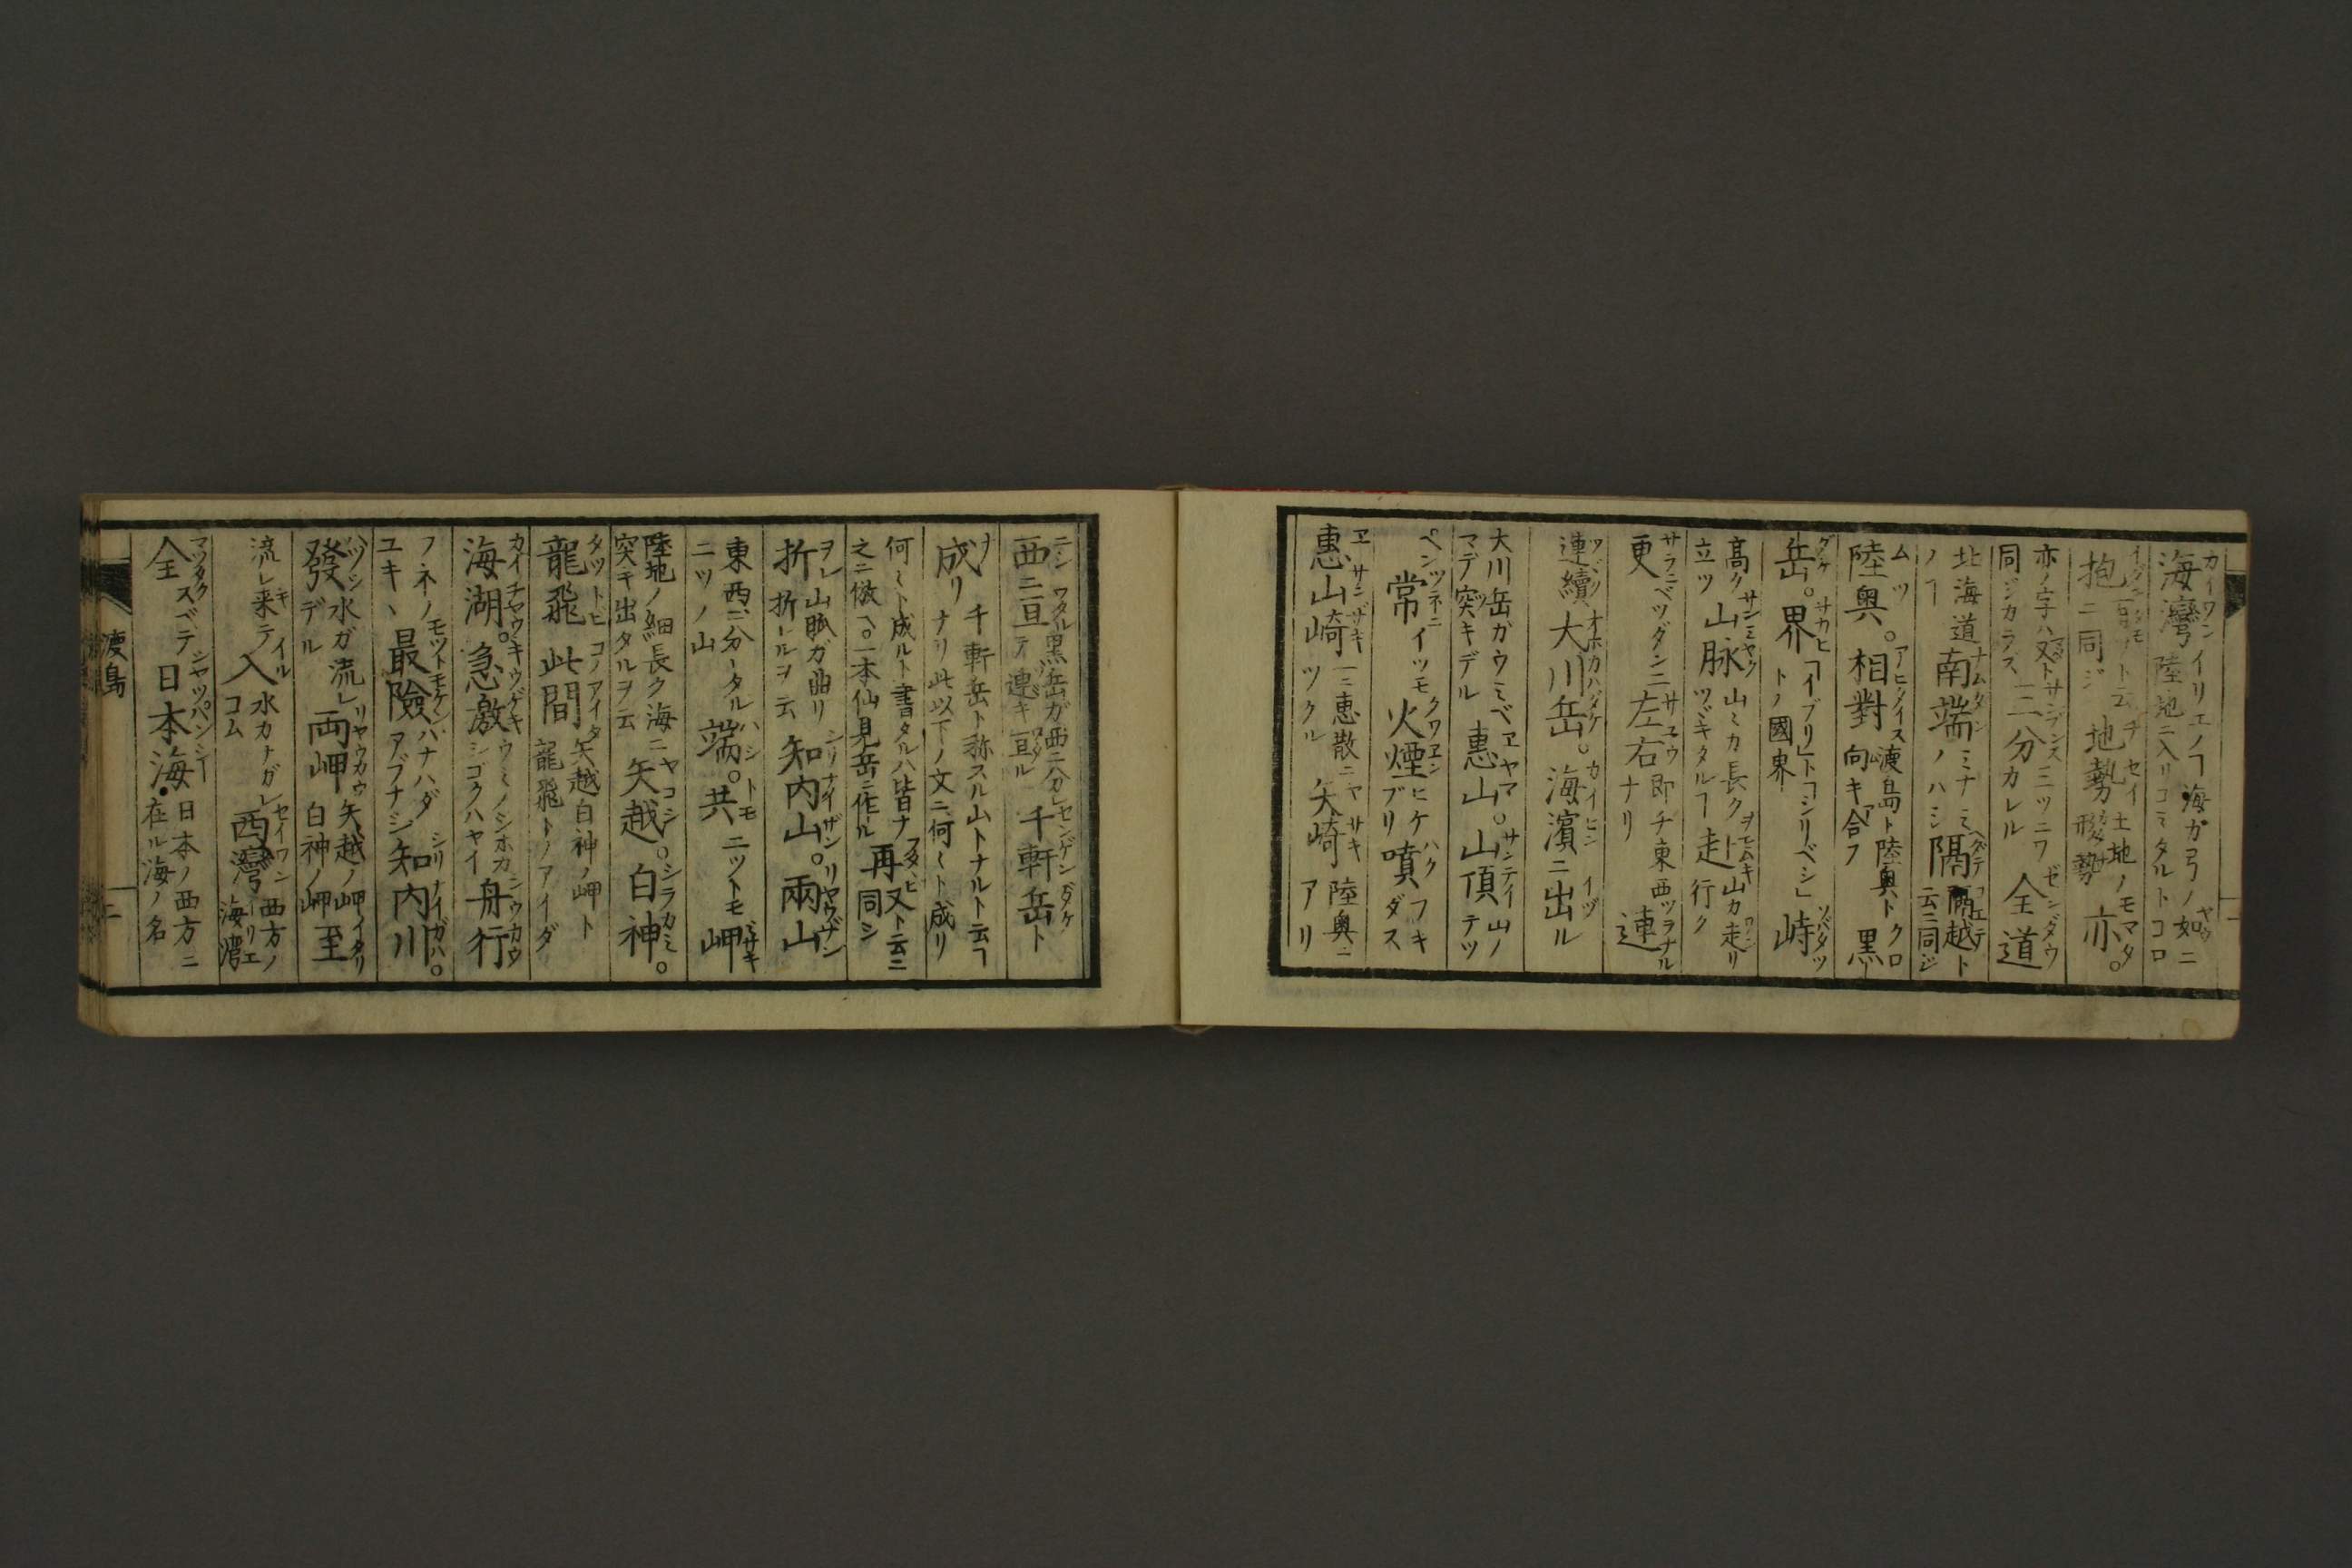 海灣イリエノヿ海ガ弓ノ如ニ陸地ニ入リコミタルトコロ
抱ニ同ジ 地勢土地ノモ形勢 亦。
亦ノ字ハ又ト同ジカラス 三分三ツニワカレル 全道
北海道ノヿ 南端ミナミノハシ 隔ト云ニ同ジ
陸奥。相對渡島ト陸奥ト向キ合フ 黒
岳。界「イブリ」ト「シリベシ」トノ國界 峙
高ク立ツ 山脉山ミカ長クツヾキタルヿ 走山カ走リ行ク
更サラニベツダンニ 左右即チ東西ナリ 連
連續 大川岳。海濱ニ出ル
大川岳ガウミベマデ突キデル 惠山。山頂山ノテツ
ペン 常イツモ 火煙ヒケブリ 噴フキダス
惠山崎一ニ惠散ニツクル 矢崎陸奥ニアリ
西ニ亘黒岳ガ西ニ分レテ連キ亘ル 千軒岳ト
成リ 千軒岳ト称スル山トナルト云ヿナリ此以下ノ文ニ何〻ト成リ
何〻ト成ルト書タルハ皆ナ之ニ倣ヘ○一本仙見岳ニ作ル 再又ト云ニ同シ
折山脈ガ曲リ折レルヲ云 知内山。兩山
東西ニ分レタルニツノ山 端。共ニツトモ 岬
陸地ノ細長ク海ニ突キ出タルヲ云 矢越。白神。
龍飛 此間矢越白神ノ岬ト龍飛トノアイダ
海潮。急激ウミノシホカシゴクハヤイ 舟行
フネノユキヽ 最險ハナハダアブナシ 知内川。
發水ガ流レデル 両岬矢越ノ岬白神ノ岬 至
流レ来テ 入水カナガレコム 西灣西方ノ海灣
全スベテ 日本海日本ノ西方ニ在ル海ノ名
渡島